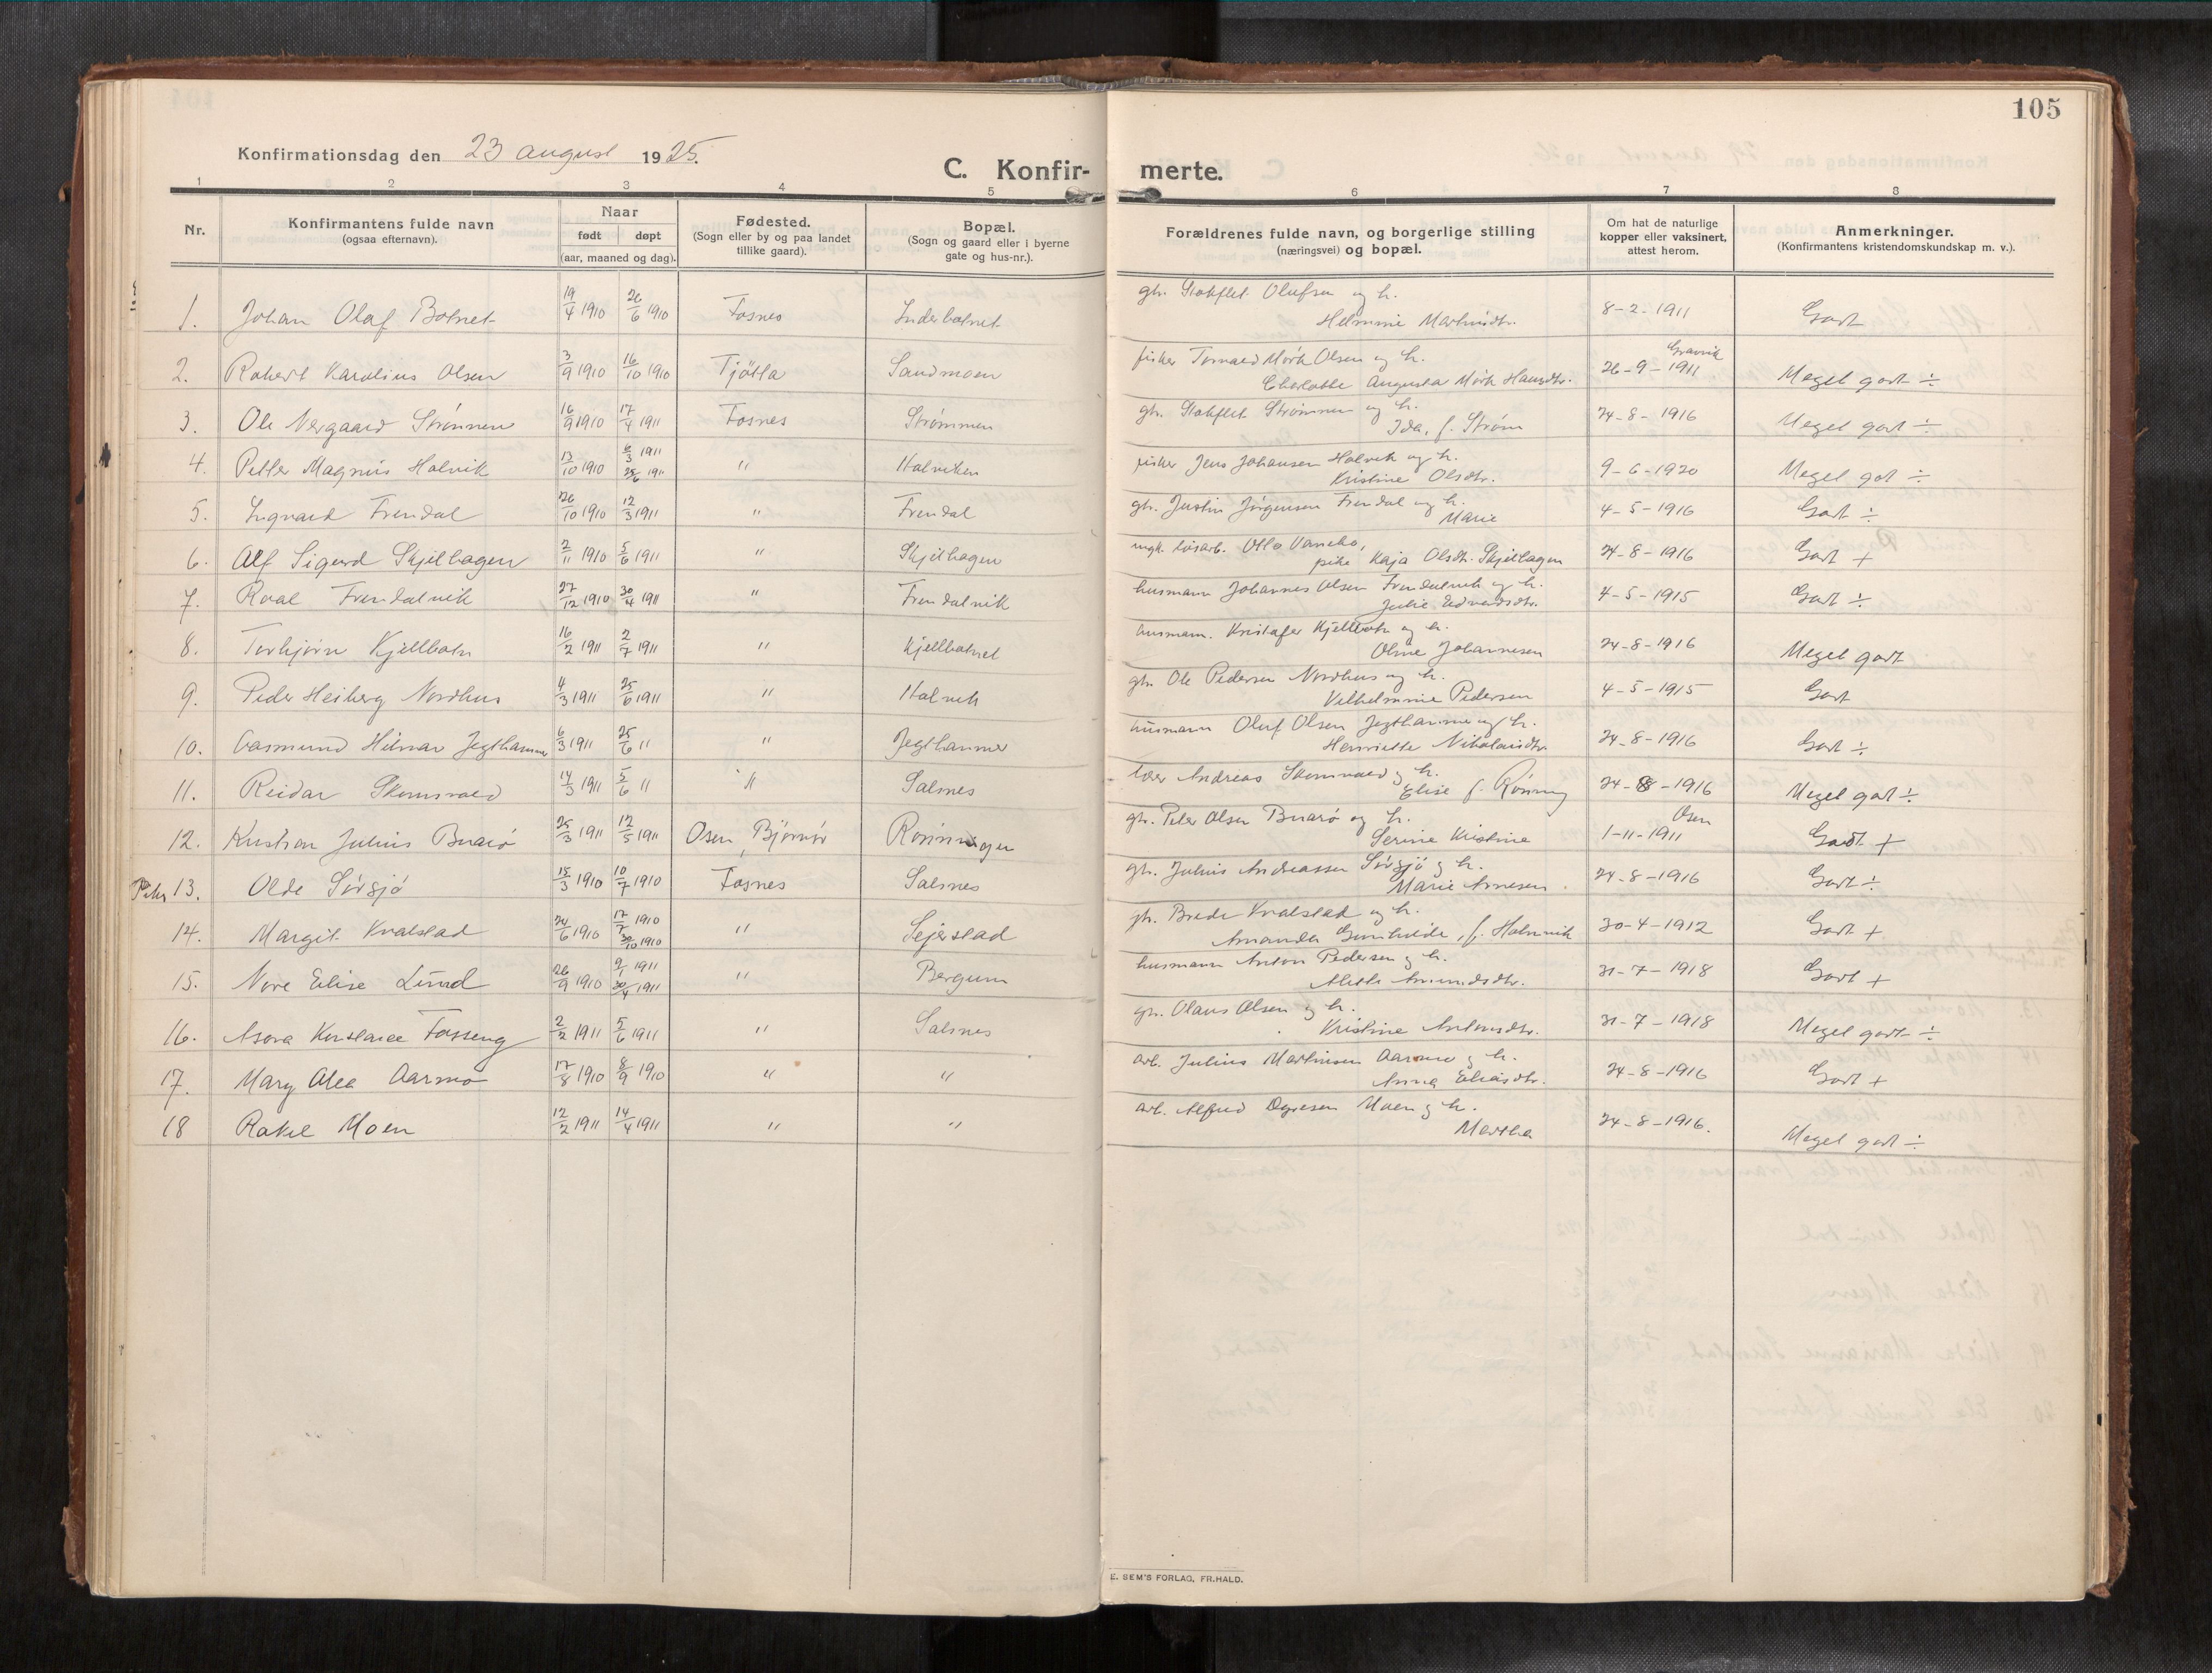 105
Konfirmationsdag den 23 august 1925.
C. Konfir-merte.
1 2 3 4 5 6 7 8
Nr.
Konfirmantens fulde navn
(ogsaa efternavn).
Naar
født døpt
(aar, maaned og dag).
Fødested.
(Sogn eller by og paa landet
tillike gaard).
Bopæl.
(Sogn og gaard eller i byerne
gate og hus-nr.).
Forældrenes fulde navn, og borgerlige stilling
(næringsvei) og bopæl.
Om hat de naturlige
kopper eller vaksinert,
attest herom.
Anmerkninger.
(Konfirmantens kristendomskundskap m. v.).
1. Johan Olaf Botnet 19/4 1910 26/6 1910 Fosnes Inderbotnet
gbr. Olufsen og h.
Helmine Martinsdtr. 8-2-1911 Godt
2. Robert Karolius Olsen 3/9 1910 16/10 1910 Tjötta Sandmoen
fisker Mörk Olsen og h. Gravvik
Charlotte Augusta Mörk Hansdtr. 26-9-1911 Meget godt ÷
3. Ole Nergaard Strömmen 16/9 1910 17/4 1911 Fosnes Strömmen
gbr. Strömmen og h.
Ida, f. Ström 24-8-1916 Meget godt ÷
4. Petter Magnus Halvik 13/10 1910 6/3 1911 25/6 1911 " Halviken
fisker Jens Johansen Halvik og h.
Kristine Olsdtr. 9-6-1920 Meget got ÷
5. Ingvard Frendal 26/10 1910 12/3 1911 " Frendal
gbr. Justin Jörgensen Frendal og h.
Marie 4-5-1916 Godt ÷
6. Alf Sigurd Skjelhagen 2/11 1910 5/6 1911 " Skjelhagen
ungk. lösarb. Otto
pike Kaja Olsdtr. Skjelhagen 24-8-1916 Godt +
7. Roal Frendalvik 27/12 1910 30/4 1911 " Frendalvik
husmann Johannes Olsen Frendalvik og h.
Julie Edvardsdtr. 4-5-1915 Godt ÷
8. Torbjörn Kjellbotn 16/2 1911 2/7 1911 " Kjellbotnet
husmann. Kristofer Kjellbotn og h.
Oline Johannesen 24-8-1916 Meget godt
9. Peder Heiberg Nordhus 4/3 1911 25/6 1911 " Halvik
gbr. Ole Pedersen Nordhus og h.
Vilhelmine Pedersen 4-5-1915 Godt
10. Aasmund Hilmar Jegthammer 6/3 1911 25/6 11 " Jegthammer
husmann Oluf Olsen og h.
Henriette Nikolaisdtr. 24-8-1916 Godt ÷
11. Reidar Skomsvold 14/3 1911 5/6 11 " Salsnes
lærer Andreas Skomsvold og h.
Elise f. Rönning 24-8-1916 Meget got ÷
12. Kristian Julius Buarö 25/3 1911 12/5 1911 Osen, Björnör
gbr. Peter Olsen Buarö og h. Osen
Serine Kristine 1-11-1911 Godt +
Piker 13. Olde Sörsjö 15/3 1910 10/7 1910 Fosnes Salsnes
gbr. Julius Andreassen Sörsjö og h.
Marie Arnesen. 24-8-1916 Godt ÷
14. Margit Kvalstad 24/6 1910 17/7 1910 30/10 1910 " Sejerstad
gbr. Brede Kvalstad og h.
Amanda Gunhilde, f. Halvik 30-4-1912 Godt +
15. Nore Elise Lund 26/9 1910 9/1 1911 30/4 1911 " Bergum
husmann Anton Pedersen og h.
31-7-1918 Godt +
16. Fosseng 2/2 1911 5/6 1911 " Salsnes
gbr. Olaus Olsen og h.
Kristine Antonsdtr. 31-7-1918 Meget godt ÷
17. Mary Alea Aarmo 17/8 1910 8/9 1910 " "
arb. Julius Martinsen Aarmo og h.
Anna Eliasdtr. 24-8-1916 Godt +
18 Rakel Moen 12/2 1911 14/4 1911 " "
arb. Alfred Moen og h.
Martha 24-8-1916. Meget godt ÷
E. SEM'S FORLAG, FR.HALD.